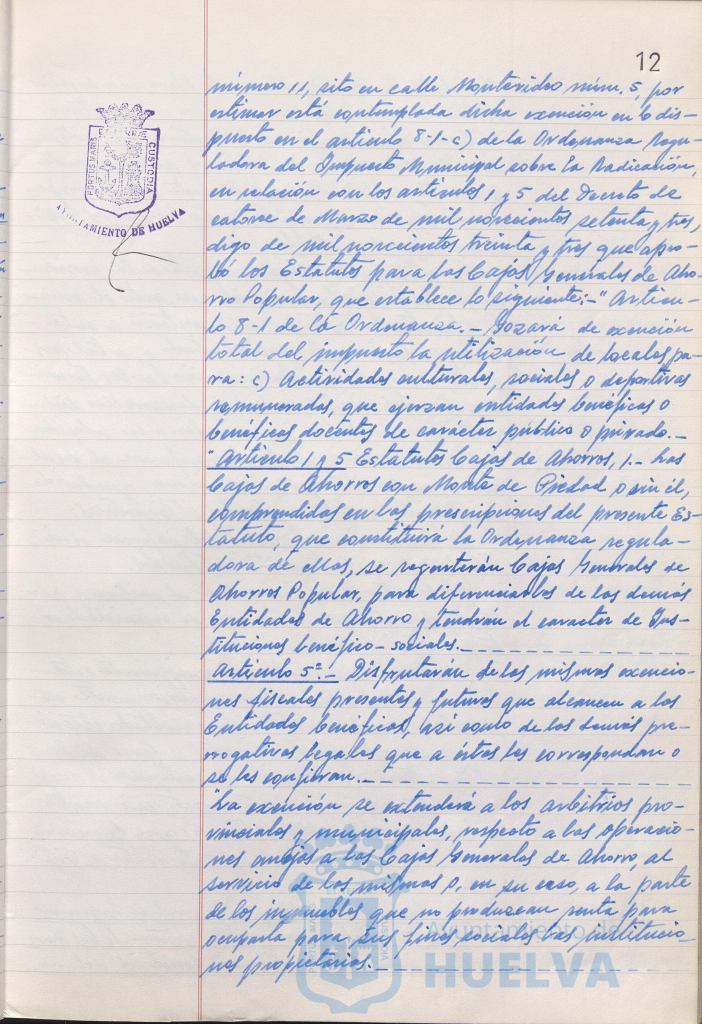 12
número 11, sito en calle Montevideo núm. 5, por
estimar está contemplada dicha exención en lo dis-
puesto en el artículo 8-1-c) de la Ordenanza Regu-
ladora del Impuesto Municipal sobre la Radicación,
en relación con los artículos 1 y 5 del Decreto de
catorce de Marzo de mil novecientos setenta y tres,
digo de mil novecientos treinta y tres que apro-
bó los Estatutos para las Cajas Generales de Aho-
rro Popular, que establece lo siguiente:-"Artícu-
lo 8-1 de la Ordenanza.- Gozará de exención
total del impuesto la utilización de locales pa-
ra: c) Actividades culturales, sociales o deportivas
remuneradas, que ejerzan entidades benéficas o
benéficas docentes de carácter público o privado.-
"Artículo 1 y 5 Estatutos Cajas de Ahorros, 1.- Las
Cajas de Ahorros con Monte de Piedad o sin él,
comprendidas en las prescripciones del presente Es-
tatuto, que constituirá la Ordenanza regula-
dora de ellas, se Cajas Generales de
Ahorros Popular, para diferenciarlas de las demás
Entidades de Ahorro y tendrán el caracter de Ins-
tituciones benéfico-sociales.-
Artículo 5º.- Disfrutarán de las mismas exencio-
nes fiscales presentes y futuras que alcancen a las
Entidades benéficas, así como de las demás pre-
rrogativas legales que a éstas les correspondan o
se les confieran.-
"La exención se extenderá a los arbitrios pro-
vinciales y municipales, respecto a las operacio-
nes anejas a las Cajas Generales de Ahorro, al
servicio de los mismos o, en su caso, a la parte
de los inmuebles que no produzcan renta para
ocuparla para sus fines sociales las institucio-
nes propietarias.-
PORTUS MARIS
CUSTODIA
AYUNTAMIENTO DE HUELVA
Ayuntamiento de
HUELVA